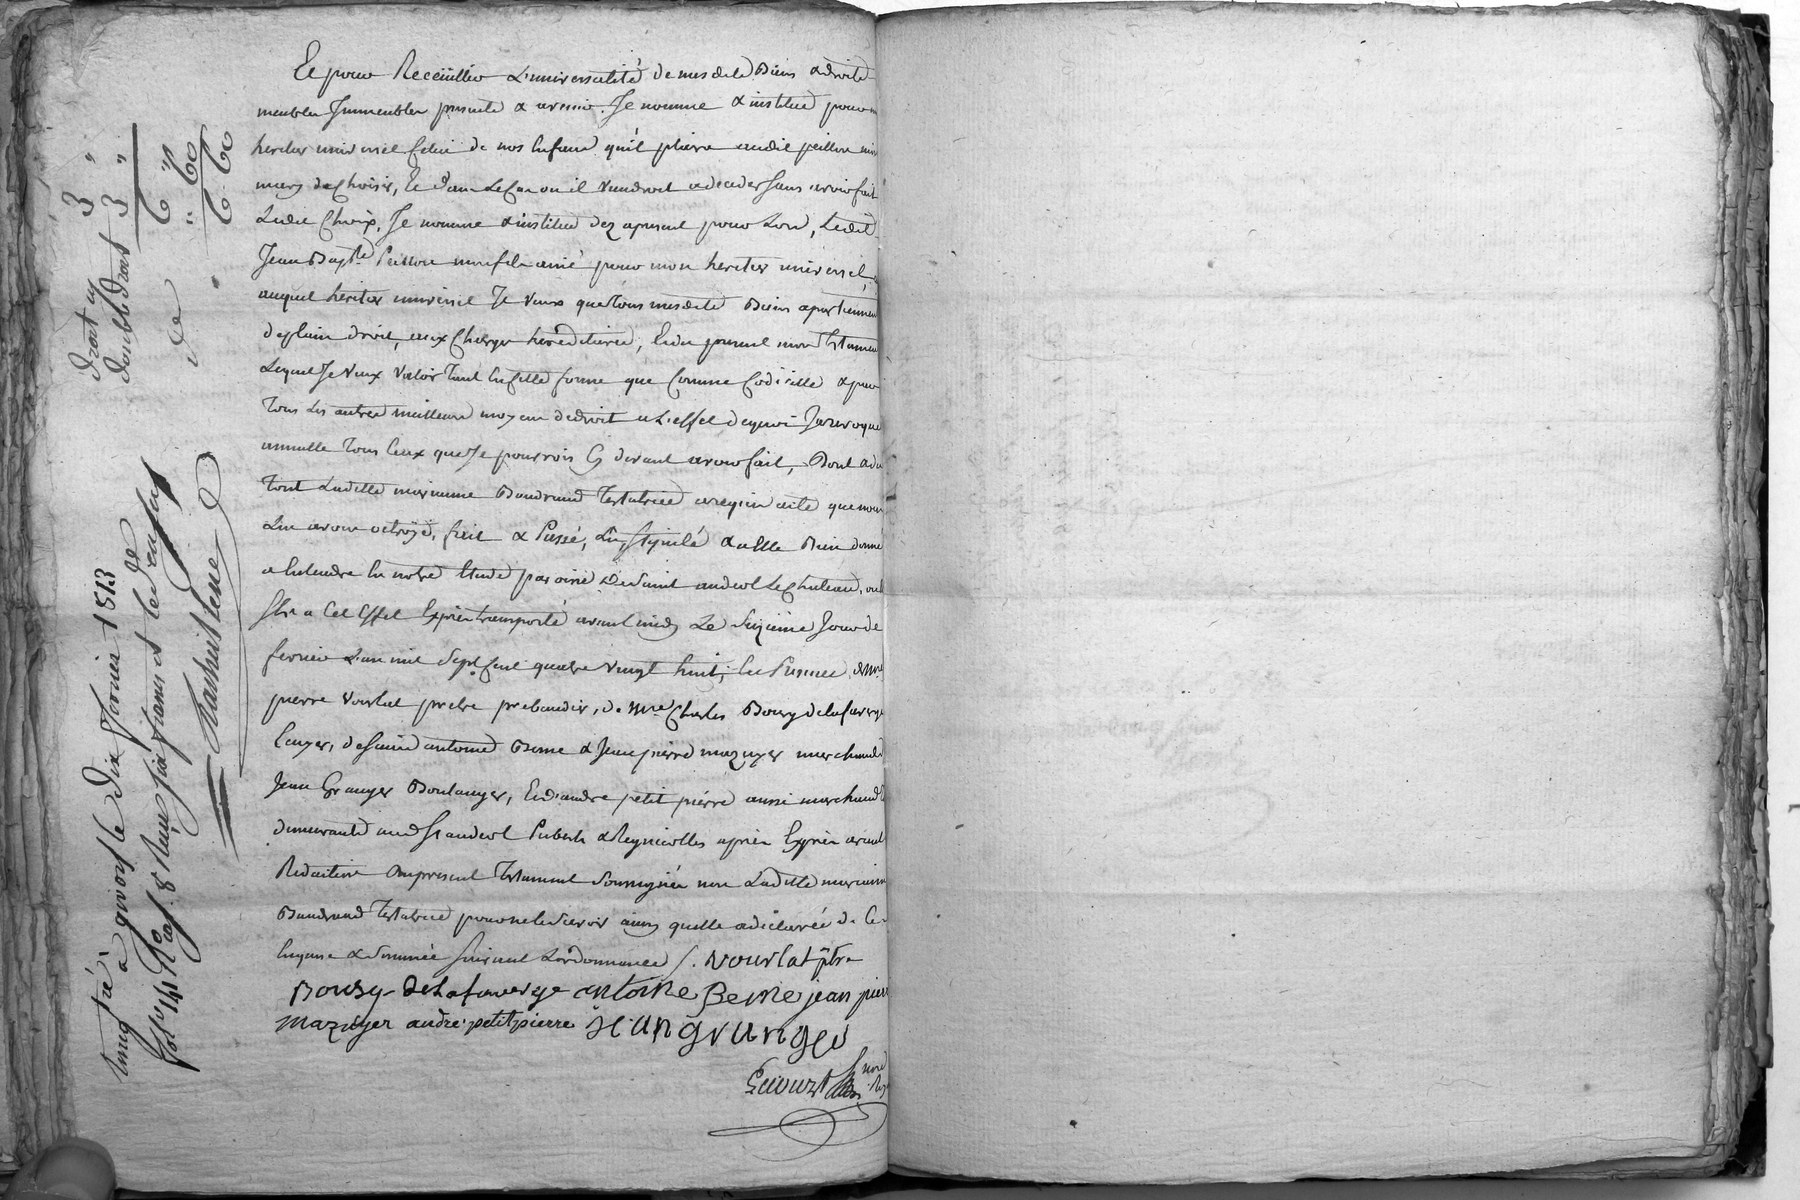 Et pour Receüillir L'universalité de mesdits Biens & droits
meubles Immeubles presents & avenir. Je nomme & institue pour
heritier universel Celui de nos Enfans qu'il plaira audit peillon mon
mary de Choisir, Et dans Le Cas ou il viendroit a deceder sans avoir fait
Ledit Choix, Je nomme & institue dez apresent pour Lors, Ledit
Jean Bapte. Peillon mon fils ainé pour mon heritier universel,
auquel heritier universel Je veux que tous mesdits Biens apartiennent
de plain droit, aux Charges hereditaires, Et du present mon Testament
Lequel Je Veux Valoir tant En Cette forme que Comme Codicille & par
Tous Les autres meilleurs moyens de droit a L'effet de quoi Je revoque
annulle Tous Ceux que Je pourrois Cy devant avoir fait, Dont & du
tout Ladite marianne Baudrand Testatrice a requis acte que nous
Lui avons octroyé, fait & Passé, Lu, Stipulé & a Elle Bien donné
a Entendre En notre Etude paroisse De Saint andeol Le Chateau, ou
a Cet Effet Exprès transporté avant midy Le Seizieme Jour de
fevrier L'an mil Sept Cent quatre vingt huit; En Presence de Mre.
pierre vourlat pretre prebandier, de Mre. Charles Bousy delafaverge
de Sieurs antoine Berne & Jean pierre mazuyer marchands
Jean Granger Boulanger, Et d'andre petit pierre aussi marchand
demeurants aud. St andeol Puberts & Regnicolles apres Exprès avant
Redaction Au present Testament Soussignés non Ladite marianne
Baudrand Testatrice pour ne Le Savoir ainsy quelle a déclaré de Ce
Enquise & Sommée Suivant L'ordonnance /. vourlat ptre
Bousy delafaverge antoine Berne jean pierre
mazuyer andré petitpierre jean granger
Enregistré à givors le dix fevrier 1813
folio 141 Ro. Cas 8 Reçu six francs et le de. en sus
droit cy 3 "
double droit 3 "
6 "
de " 60
6 60